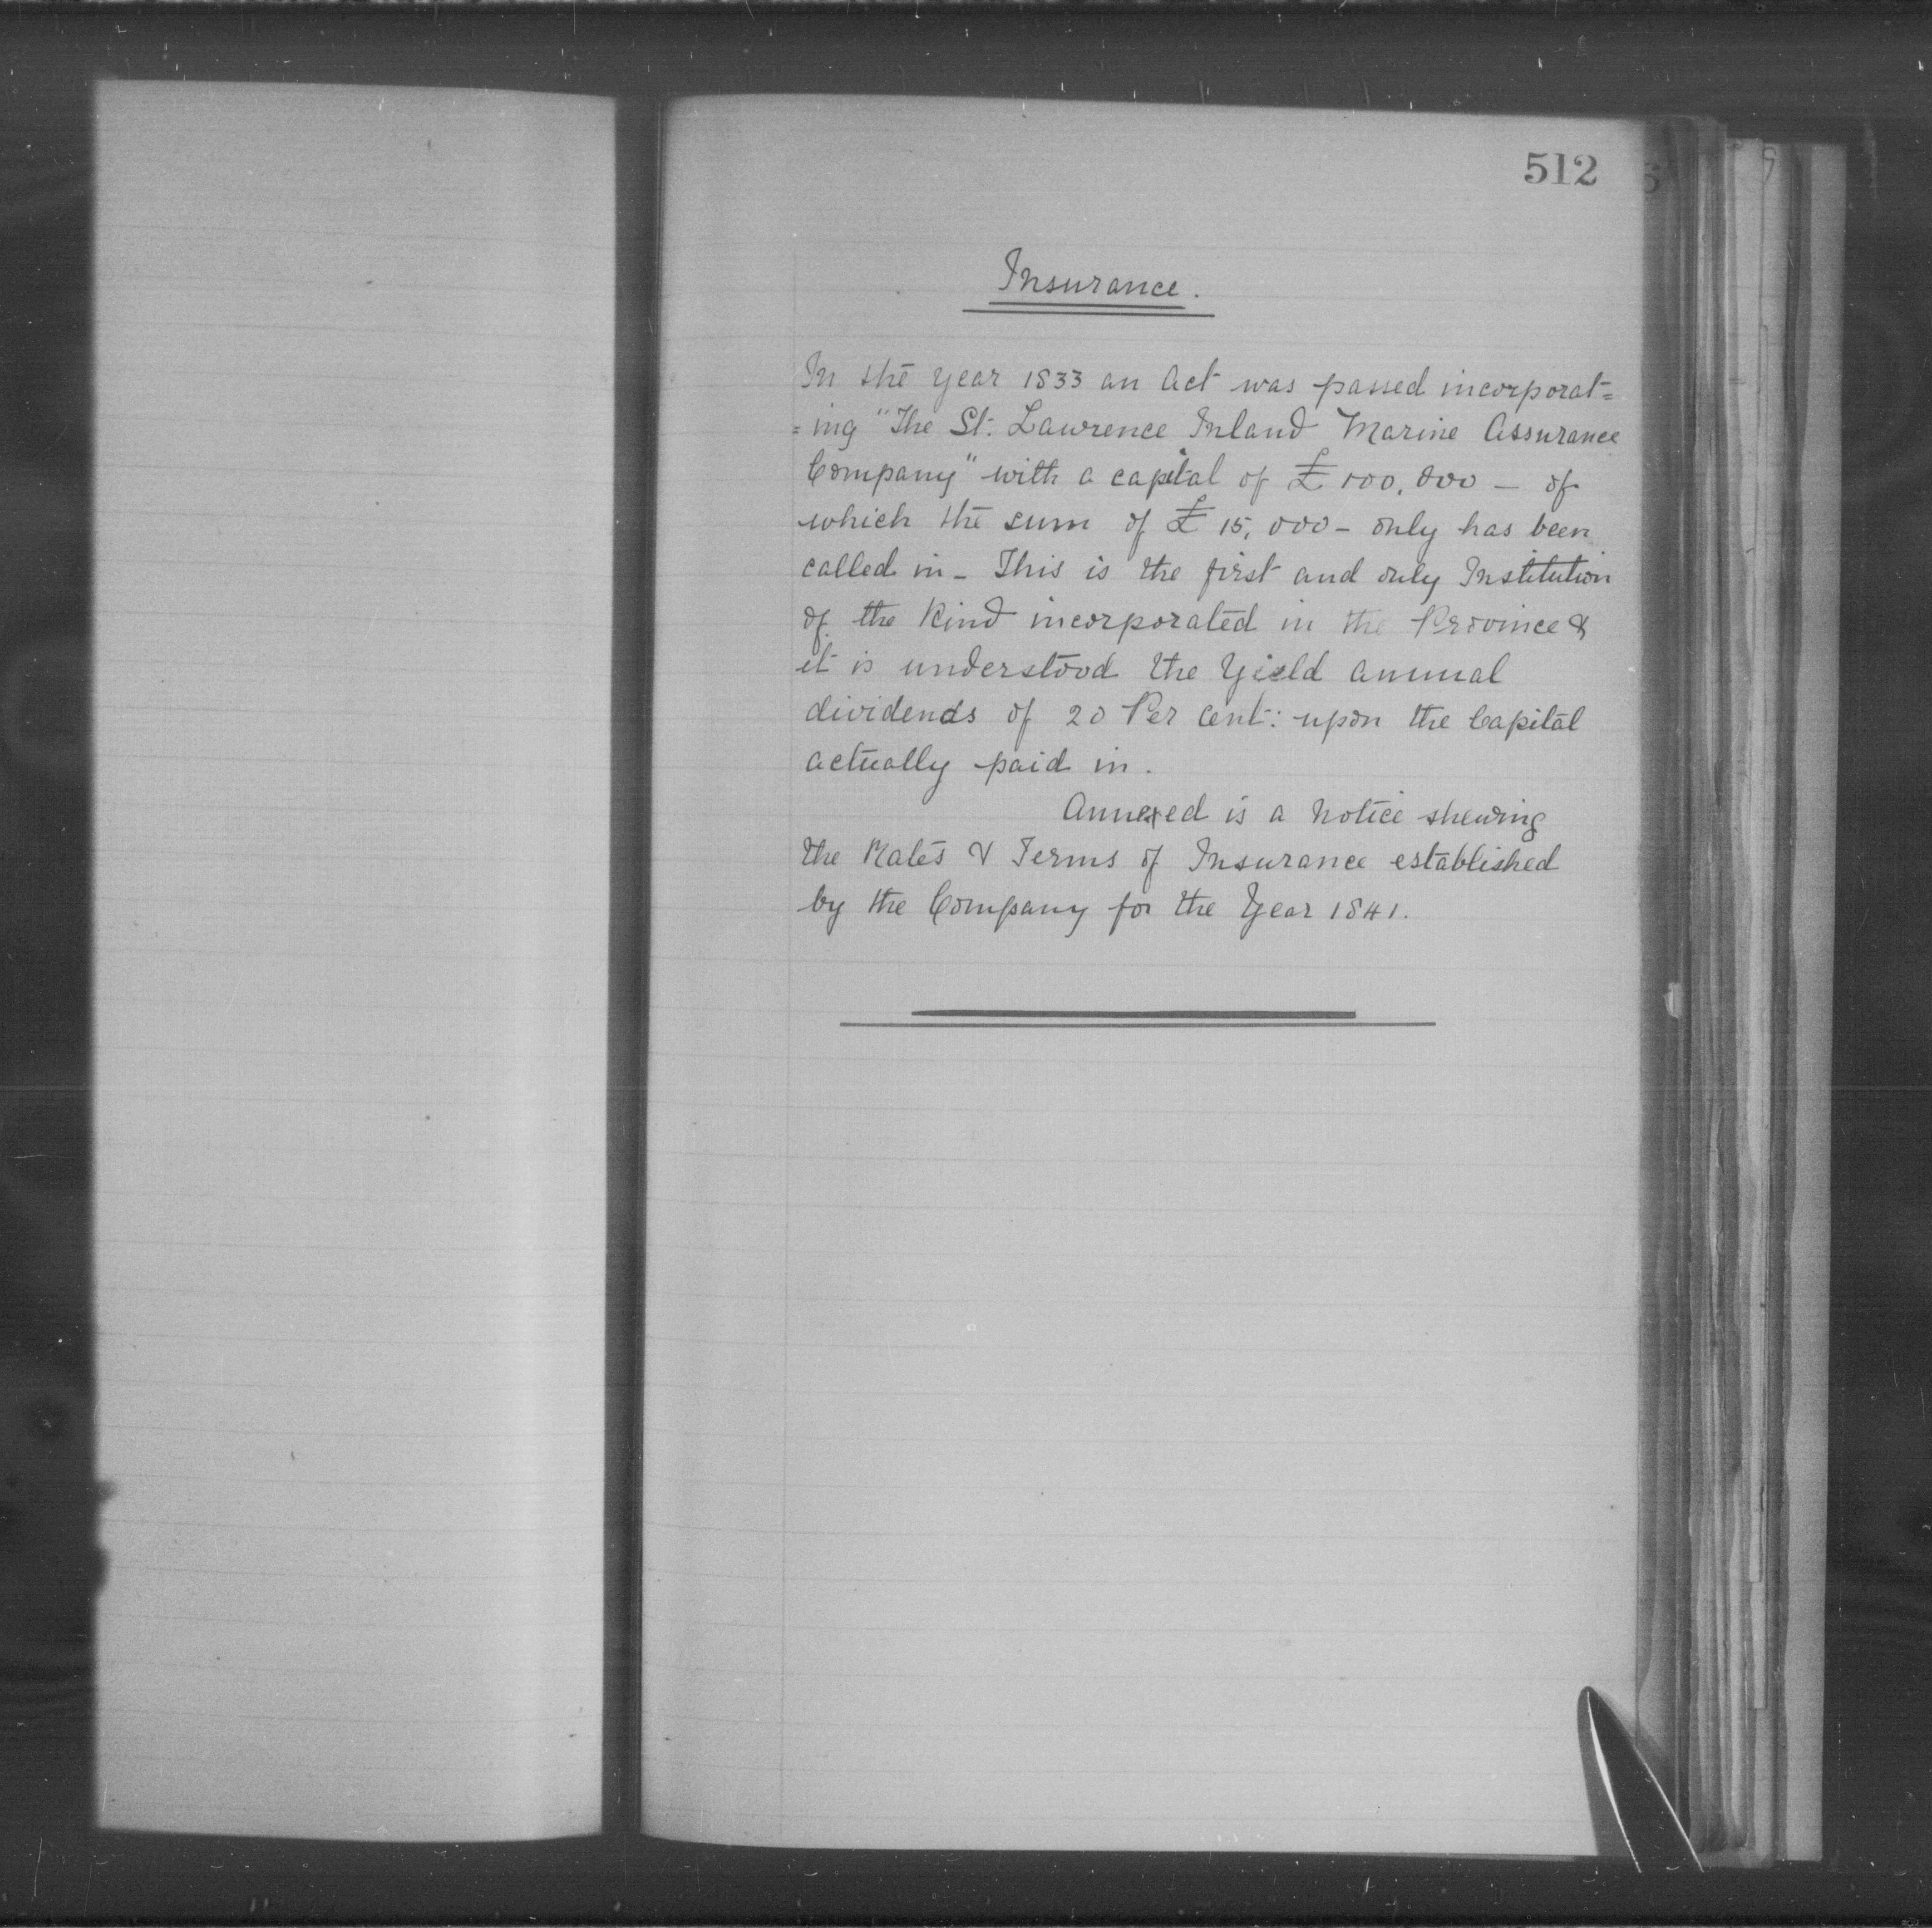 512
Insurance.
In the year 1833 an Act was passed incorporat=
=ing "The St. Lawrence Inland Marine Assurance
Company" with a capital of £100,000 - of
which the sum of £15,000 - only has been
called in - This is the first and only Institution
of the Kind incorporated in the Province &
it is understood the Yield annual
dividends of 20 Per Cent: upon the Capital
actually paid in.
Annexed is a Notice shewing
the Rates & Terms of Insurance established
by the Company for the Year 1841.